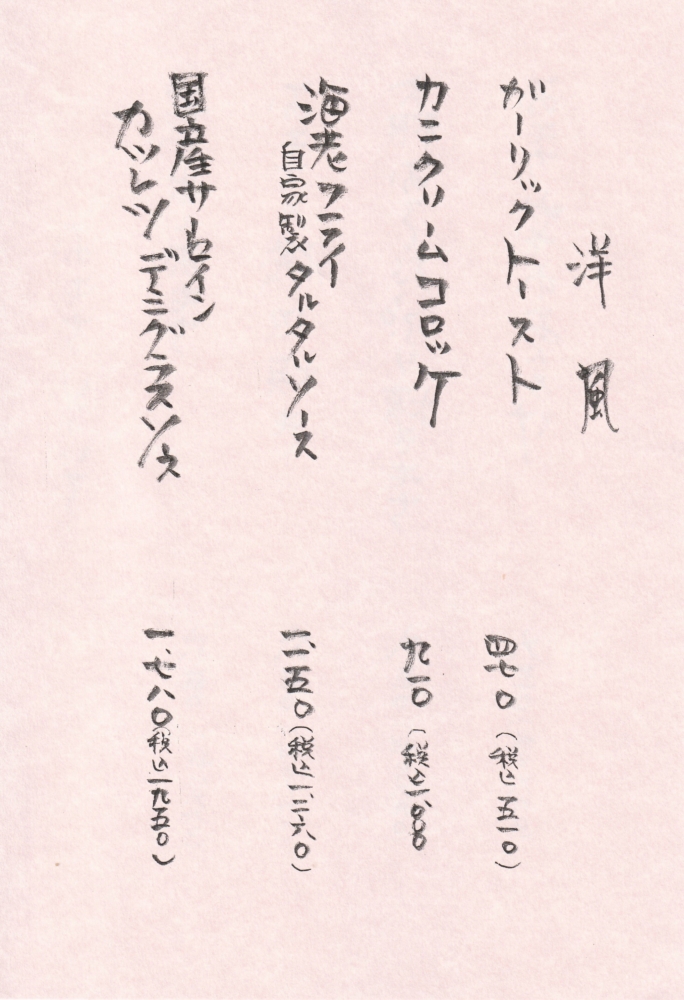 洋風
ガーリックトースト
四七〇（税込五一〇）
カニクリームコロッケ
九一〇（税込一、〇〇〇
海老フライ
自家製タルタルソース
一、一五〇（税込一、二六〇）
国産サーロイン
カツレツデミグラスソース
一、七八〇（税込一九五〇）